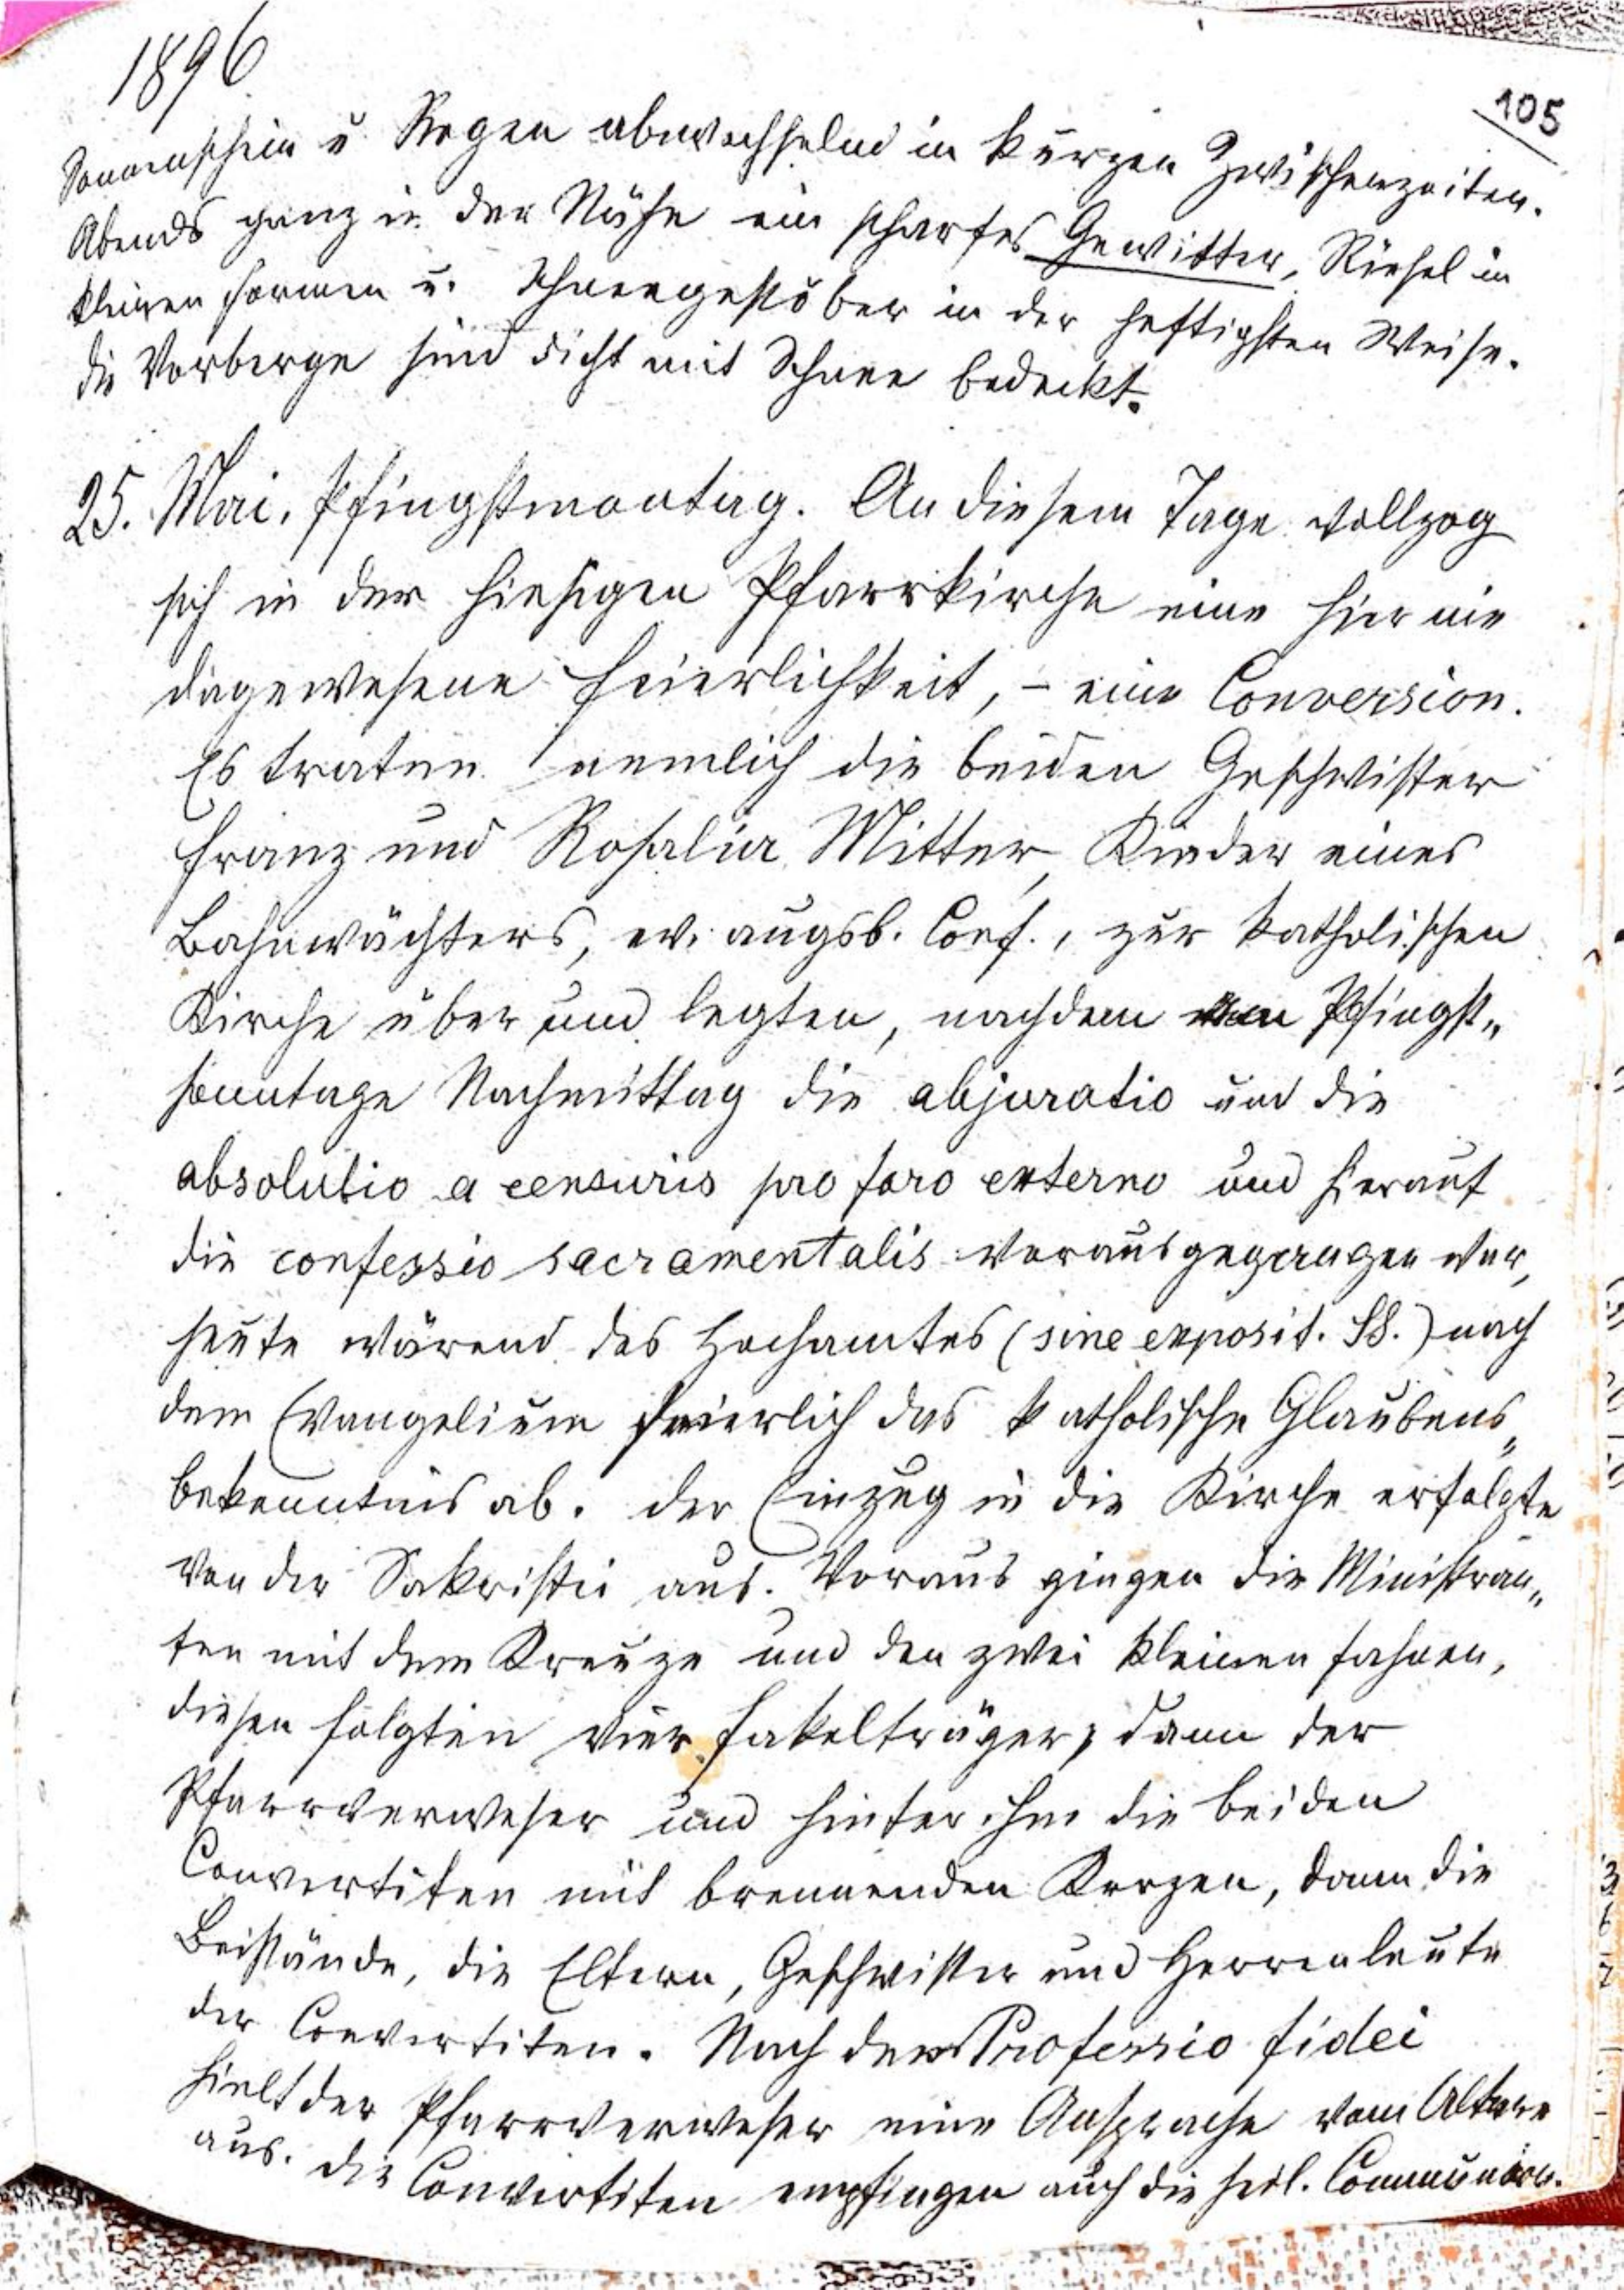 1896
105
Sonnenschein u Regen abwechselnd in kurzen Zwischenzeiten.
Abends ganz in der Nähe ein scharfes Gewitter, Riesel in
kleinen Formen u. Schneegestöber in der heftigsten Weise.
die Vorberge sind dicht mit Schnee bedeckt.
25. Mai. Pfingstmontag. An diesem Tage vollzog
sich in der hiesigen Pfarrkirche eine hier nie
dagewesene Feierlichkeit, – eine Conversion.
Es traten nemlich die beiden Geschwister
Franz und Rosalia Mitter, Kinder eines
Bahnwächters, ev. augsb. Conf., zur katholischen
Kirche über und legten, nachdem am Pfingst„
sonntage Nachmittag die abjuratio und die
absolutio a censuris pro foro externo und hierauf
die confessio sacramentalis vorausgegangen war,
heute wärend des Hochamtes (sine exposit. SS.) nach
dem Evangelium feierlich das katholische Glaubens„
bekenntnis ab. der Einzug in die Kirche erfolgte
von der Sakristei aus. Voraus gingen die Ministran„
ten mit dem Kreuze und den zwei kleinen Fahnen,
diesen folgten vier Fakelträger, dann der
Pfarrverweser und hinter ihm die beiden
Convertiten mit brennenden Kerzen, dann die
Beistände, die Eltern, Geschwister und Herrenleute
der Convertiten. Nach der Professio fidei
hielt der Pfarrverweser eine Ansprache vom Altare
aus. die Convertiten empfingen auch die heil. Communion.